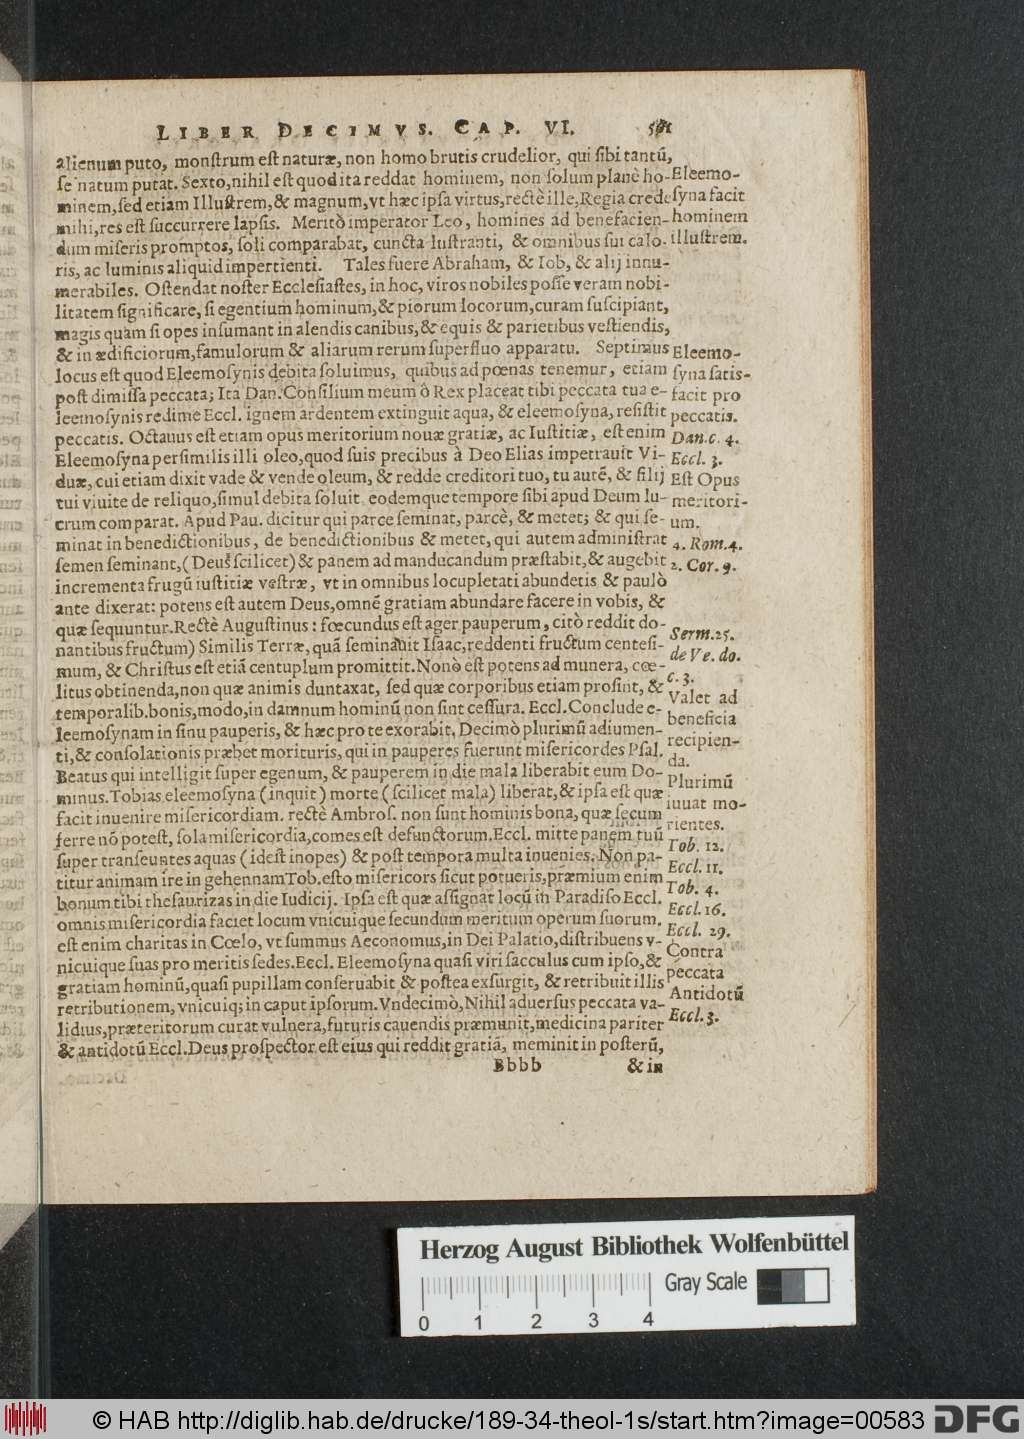 LIBER DECIMVS. CAP. VI.
alienum puto, monſtrum eſt naturæ, non homo brutis crudelior, qui ſibi tantũ,
ſe natum putat. Sexto, nihil eſt quod ita reddat hominem, non ſolum planè ho-
minem, ſed etiam Illuſtrem, & magnum, vt hæc ipſa virtus, rectè ille, Regia crede
mihi, res eſt ſuccurrere lapſis. Meritò imperator Leo, homines ad benefacien-
dum miſeris promptos, ſoli comparabat, cuncta luſtranti, & omnibus ſui calo-
ris, ac luminis aliquid impertienti. Tales fuere Abraham, & Iob, & alij innu-
merabiles. Oſtendat noſter Eccleſiaſtes, in hoc, viros nobiles poſſe veram nobi-
litatem ſignificare, ſi egentium hominum, & piorum locorum, curam ſuſcipiant,
magis quàm ſi opes inſumant in alendis canibus, & equis & parietibus veſtiendis,
& in ædificiorum, famulorum & aliarum rerum ſuperfluo apparatu. Septimus
locus eſt quod Eleemoſynis debita ſoluimus, quibus ad pœnas tenemur, etiam
poſt dimiſſa peccata; Ita Dan. Conſilium meum ô Rex placeat tibi peccata tua e-
leemoſynis redime Eccl. ignem ardentem extinguit aqua, & eleemoſyna, reſiſtit
peccatis. Octauus eſt etiam opus meritorium nouæ gratiæ, ac Iuſtitiæ, eſt enim
Eleemoſyna perſimilis illi oleo, quod ſuis precibus à Deo Elias impetrauit Vi-
duæ, cui etiam dixit vade & vende oleum, & redde creditori tuo, tu autẽ, & filij
tui viuite de reliquo, ſimul debita ſoluit eodemque tempore ſibi apud Deum lu-
crum comparat. Apud Pau. dicitur qui parce ſeminat, parcè, & metet; & qui ſe-
minat in benedictionibus, de benedictionibus & metet, qui autem adminiſtrat
ſemen ſeminant, (Deus ſcilicet) & panem ad manducandum præſtabit, & augebit
incrementa frugũ iuſtitiæ veſtræ, vt in omnibus locupletati abundetis & paulò
ante dixerat: potens eſt autem Deus, omnẽ gratiam abundare facere in vobis, &
quæ ſequuntur. Rectè Auguſtinus: fœcundus eſt ager pauperum, citò reddit do-
nantibus fructum) Similis Terræ, quã ſeminauit Iſaac, reddenti fructum centeſi-
mum, & Chriſtus eſt etiã centuplum promittit. Nonò eſt potens ad munera, cœ-
litus obtinenda, non quæ animis duntaxat, ſed quæ corporibus etiam proſint, &
temporalib. bonis, modo, in damnum hominũ non ſint ceſſura. Eccl. Conclude e-
leemoſynam in ſinu pauperis, & hæc pro te exorabit. Decimò plurimũ adiumen-
ti, & conſolationis præbet morituris, qui in pauperes fuerunt miſericordes Pſal.
Beatus qui intelligit ſuper egenum, & pauperem in die mala liberabit eum Do-
minus. Tobias eleemoſyna (inquit) morte (ſcilicet mala) liberat, & ipſa eſt quæ
facit inuenire miſericordiam. rectè Ambroſ. non ſunt hominis bona, quæ ſecum
ferre nõ poteſt, ſola miſericordia, comes eſt defunctorum. Eccl. mitte panem tuũ
ſuper tranſeuntes aquas (ideſt inopes) & poſt tempora multa inuenies. Non pa-
titur animam ire in gehennam Tob. eſto miſericors ſicut potueris, præmium enim
bonum tibi theſaurizas in die Iudicij. Ipſa eſt quæ aſſignat locũ in Paradiſo Eccl.
omnis miſericordia faciet locum vnicuique ſecundum meritum operum ſuorum.
eſt enim charitas in Cœlo, vt ſummus Aeconomus, in Dei Palatio, diſtribuens v-
nicuique ſuas pro meritis ſedes. Eccl. Eleemoſyna quaſi viri ſacculus cum ipſo, &
gratiam hominũ, quaſi pupillam conſeruabit & poſtea exſurgit, & retribuit illis
retributionem, vnicuiq; in caput ipſorum. Vndecimò, Nihil aduerſus peccata va-
lidius, præteritorum curat vulnera, futuris cauendis præmunit, medicina pariter
& antidotũ Eccl. Deus proſpector eſt eius qui reddit gratiã, meminit in poſterũ,
Bbbb & in
Eleemo-
ſyna facit
hominem
illuſtrem.
Eleemo-
ſyna ſatis-
facit pro
peccatis.
Dan. c. 4.
Eccl. 3.
Eſt Opus
meritori-
um.
4. Rom. 4.
2. Cor. 9.
Serm. 25.
de Ve. do.
c. 3.
Valet ad
beneficia
recipien-
da.
Plurimũ
iuuat mo-
rientes.
Tob. 12.
Eccl. 11.
Tob. 4.
Eccl. 16.
Eccl. 29.
Contra
peccata
Antidotũ
Eccl. 3.
Herzog August Bibliothek Wolfenbüttel
Gray Scale
0 1 2 3 4
© HAB http://diglib.hab.de/drucke/189-34-theol-1s/start.htm?image=00583 DFG